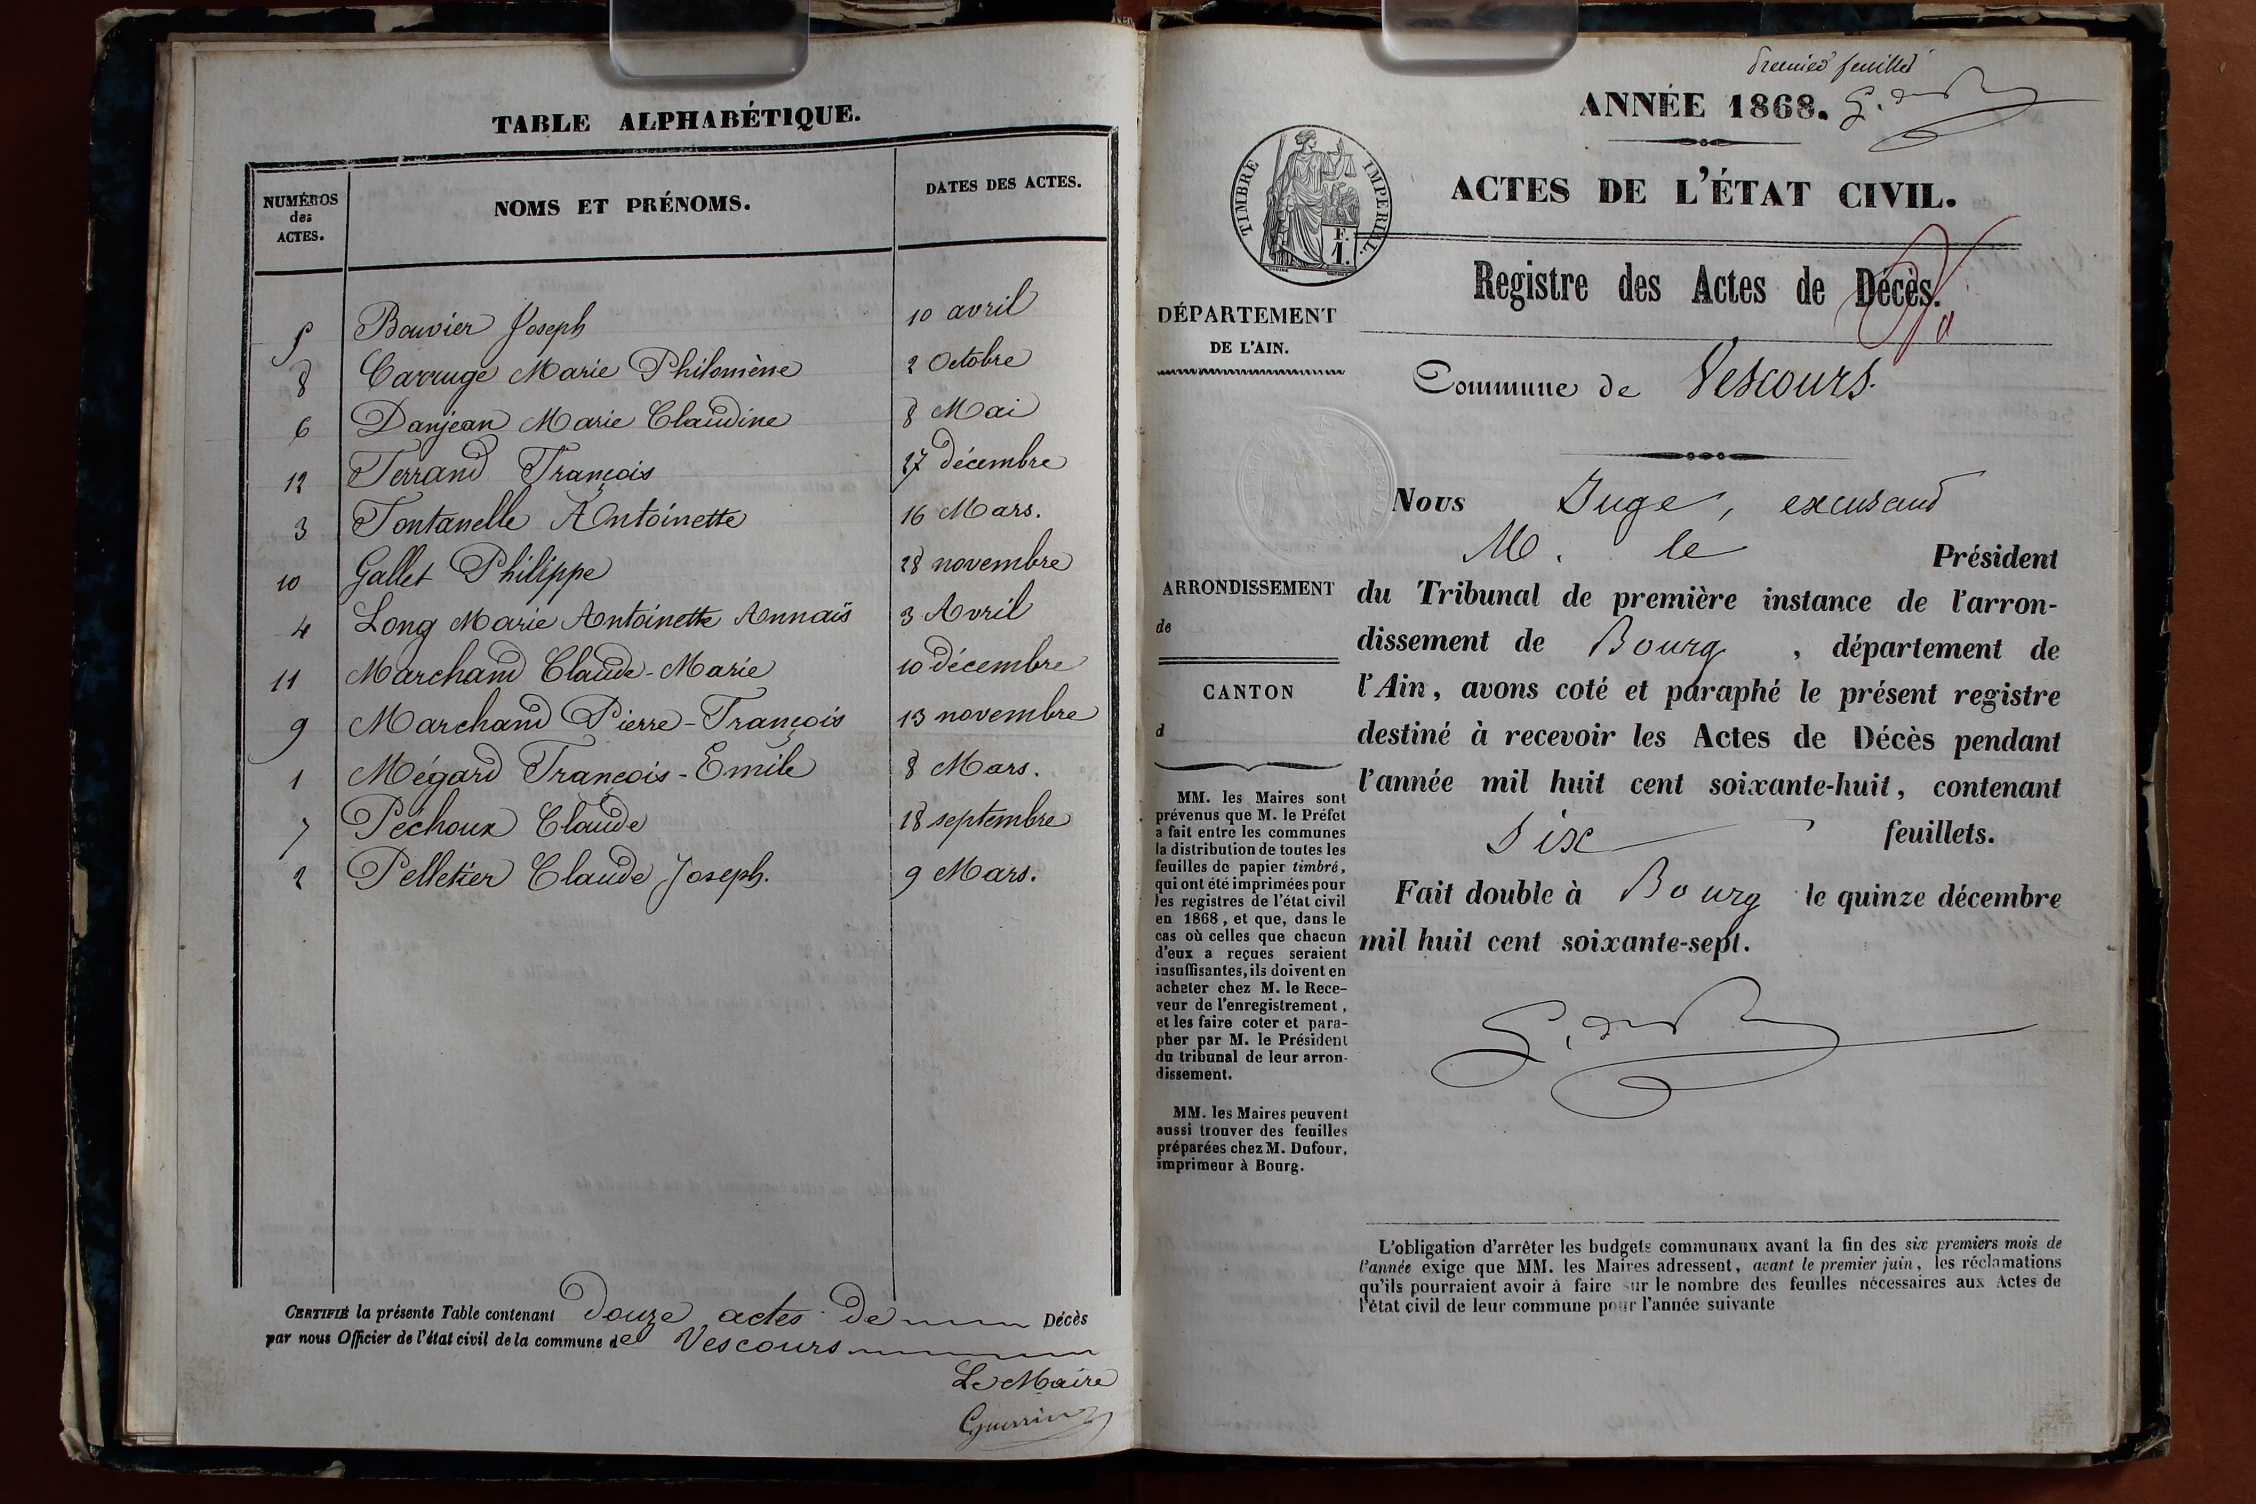 TABLE ALPHABÉTIQUE.
NUMÉROS des ACTES.
NOMS ET PRÉNOMS.
DATES DES ACTES.
5 Bouvier Joseph 10 avril
8 Carruge Marie Philomène 2 Octobre
6 Danjean Marie Claudine 8 Mai
12 Ferrand François 27 décembre
3 Fontanelle Antoinette 16 Mars.
10 Gallet Philippe 28 novembre
4 Long Marie Antoinette Annaïs 3 Avril
11 Marchand Claude-Marie 10 décembre
9 Marchand Pierre-François 13 novembre
1 Mégard François-Emile 8 Mars.
7 Péchoux Claude 18 septembre
2 Pelletier Claude Joseph. 9 Mars.
CERTIFIÉ la présente Table contenant Douze actes de Décès
par nous Officier de l'état civil de la commune de Vescours
Le Maire
Guerrin
premier feuillet
ANNÉE 1868.
ACTES DE L'ÉTAT CIVIL.
TIMBRE IMPERIAL.
F.
1.
Registre des Actes de Décès.
DÉPARTEMENT
DE L'AIN.
Commune de Vescours.
ARRONDISSEMENT
de
CANTON
d
MM. les Maires sont
prévenus que M. le Préfet
a fait entre les communes
la distribution de toutes les
feuilles de papier timbré,
qui ont été imprimées pour
les registres de l'état civil
en 1868, et que, dans le
cas où celles que chacun
d'eux a reçues seraient
insuffisantes, ils doivent en
acheter chez M. le Rece-
veur de l'enregistrement,
et les faire coter et para-
pher par M. le Président
du tribunal de leur arron-
dissement.
MM. les Maires peuvent
aussi trouver des feuilles
préparées chez M. Dufour,
imprimeur à Bourg.
Nous Juge, excusant
M. le Président
du Tribunal de première instance de l'arron-
dissement de Bourg, département de
l'Ain, avons coté et paraphé le présent registre
destiné à recevoir les Actes de Décès pendant
l'année mil huit cent soixante-huit, contenant
six feuillets.
Fait double à Bourg le quinze décembre
mil huit cent soixante-sept.
L'obligation d'arrêter les budgets communaux avant la fin des six premiers mois de
l'année exige que MM. les Maires adressent, avant le premier juin, les réclamations
qu'ils pourraient avoir à faire sur le nombre des feuilles nécessaires aux Actes de
l'état civil de leur commune pour l'année suivante